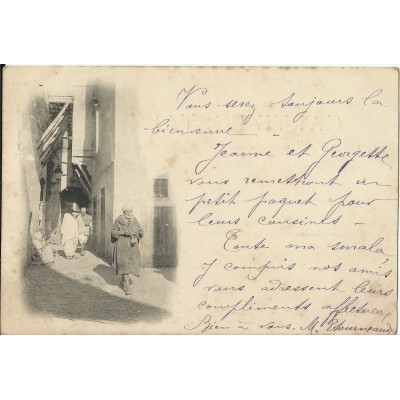 Vous serez toujours la
bienvenue —
Jeanne et Georgette
vous remettront un
petit paquet pour
leurs cousines —
Toute ma smala
y compris nos amis
vous adressent leurs
compliments affectueux
Bien à vous. M.